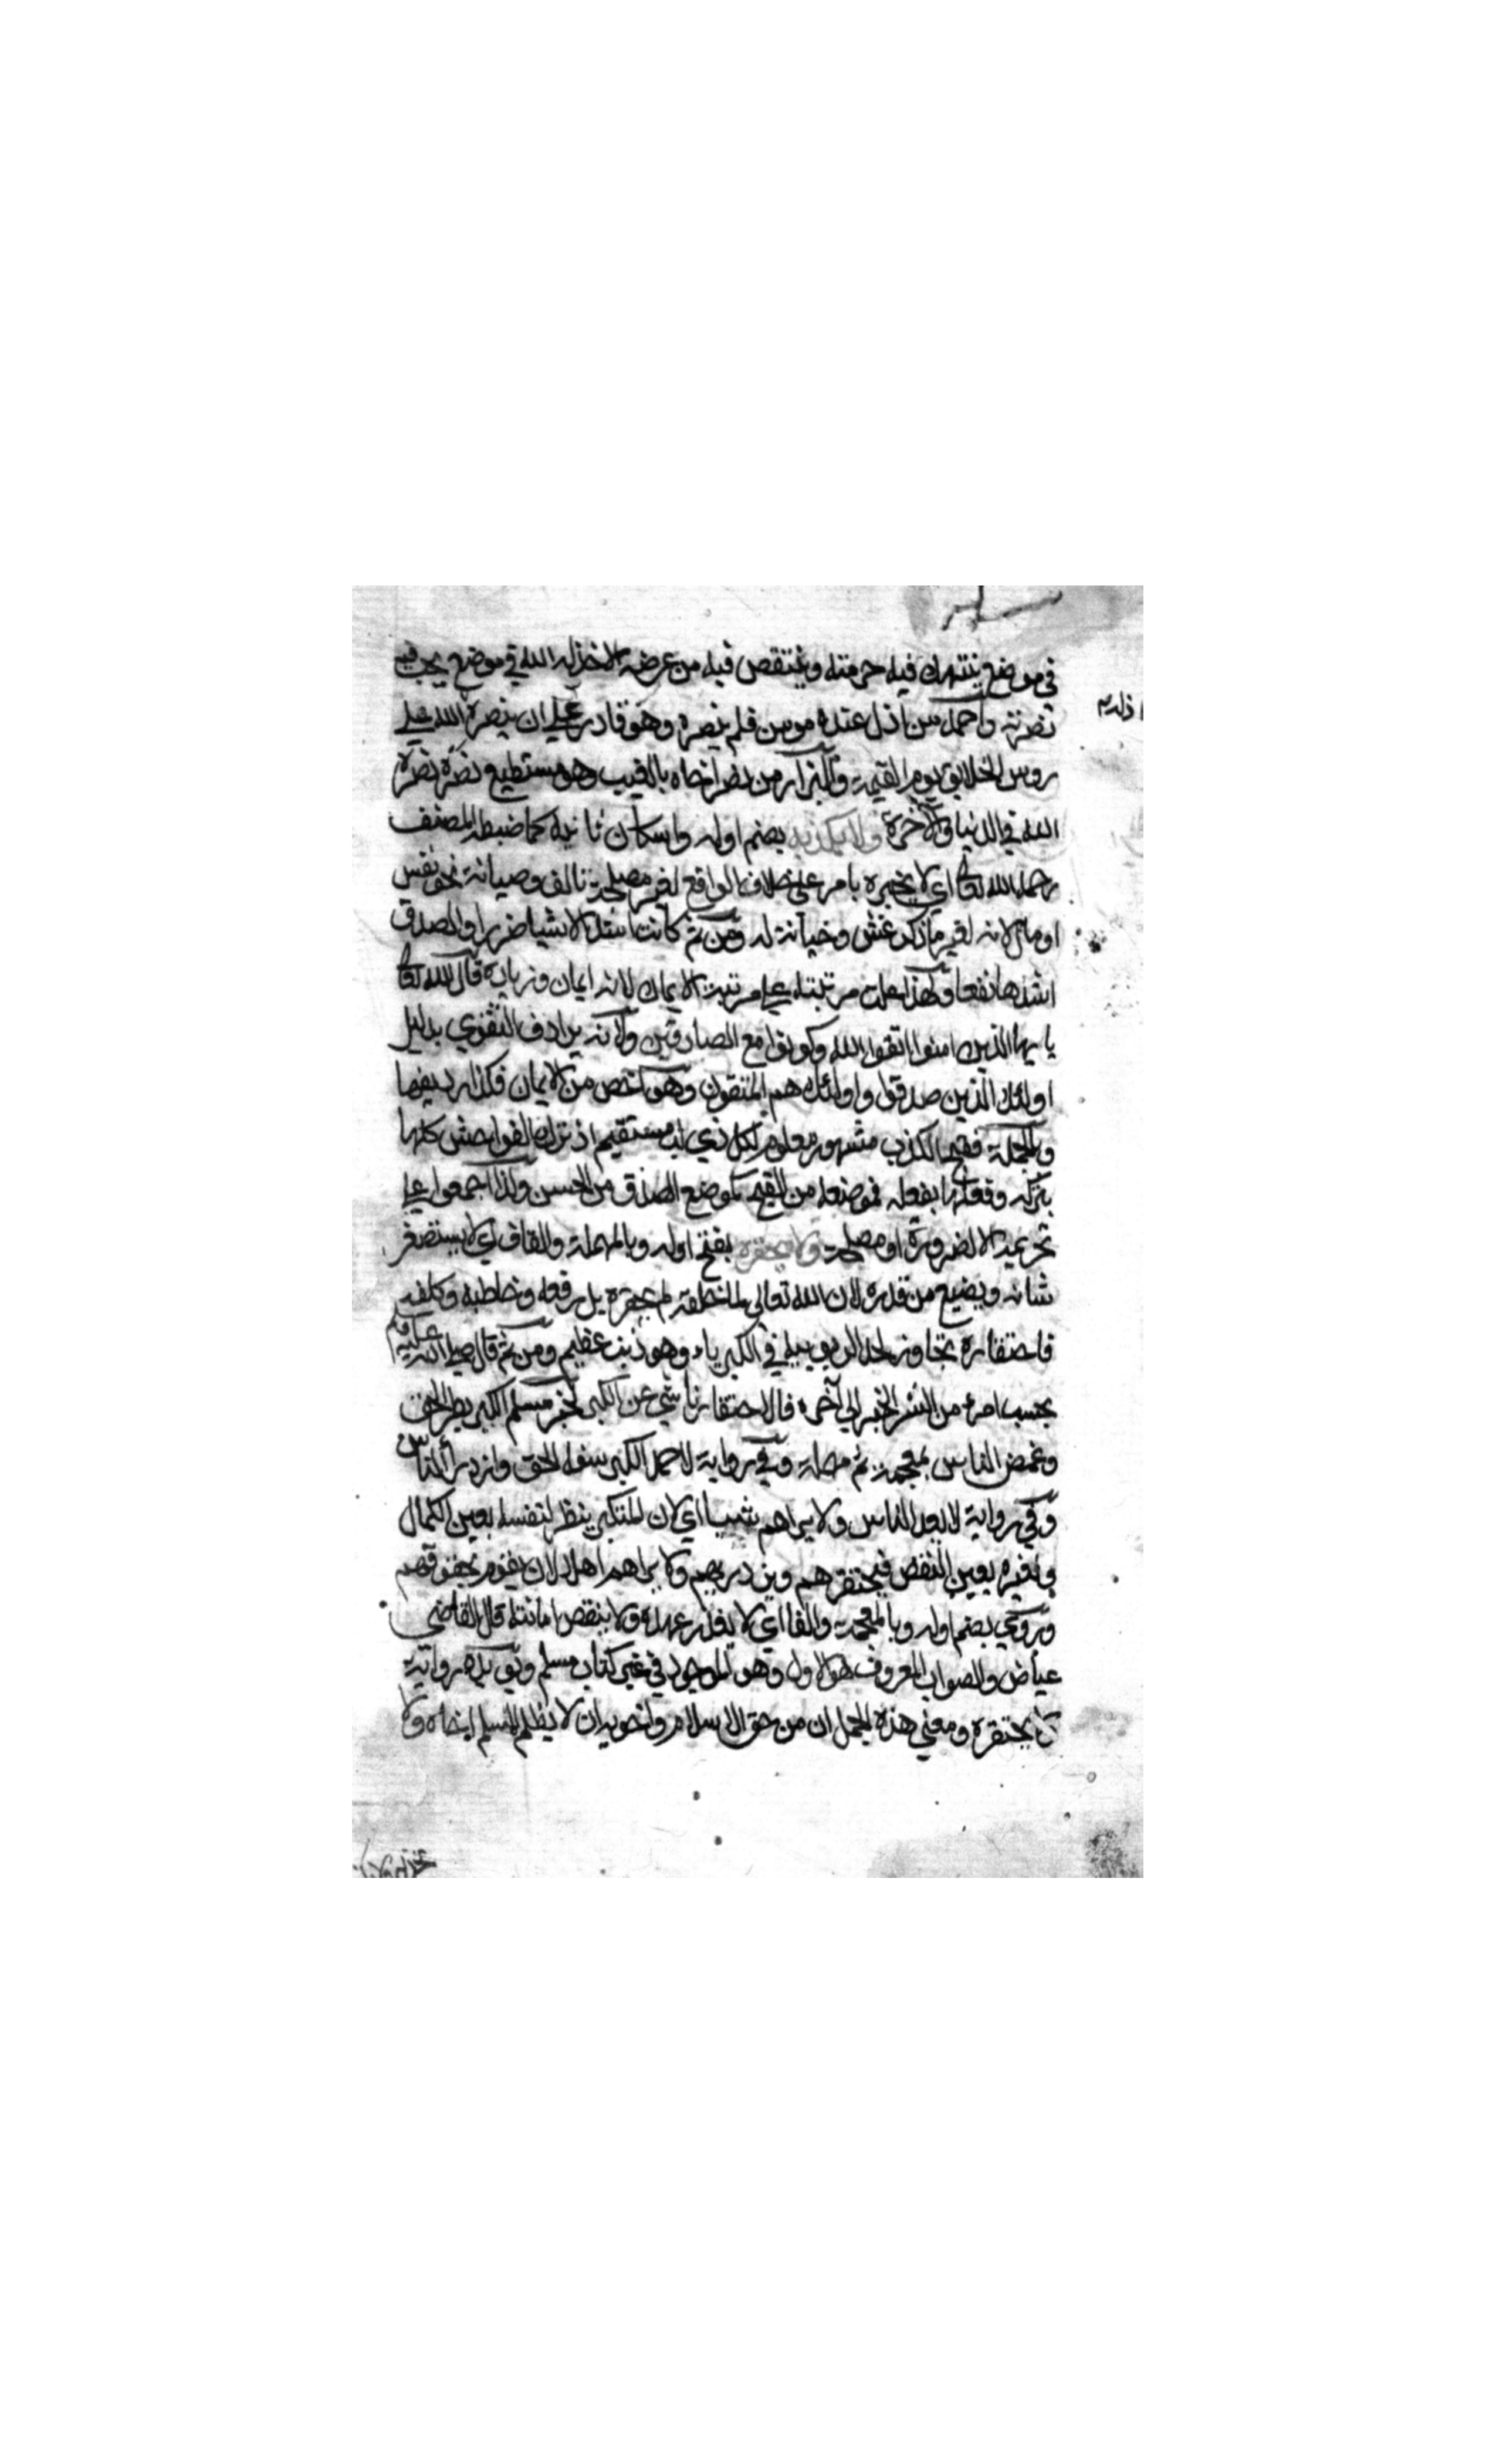 في موضع ينتهك فيه حرمته وينتقص فيه من عرضه الا خذله الله في موضع يحب فيه
نصرته واحمد من اذل عنده مومن فلم ينصره وهو قادر علي ان ينصره اذله الله علي
روس الخلايق يوم القيمة والبزار من نصر اخاه بالغيب وهو مستطيع نصره نصره
الله في الدنيا والاخرة ولا يكذبه بضم اوله واسكان ثانيه كما ضبطه المصنف
رحمه الله تعالي اي لا يخبره بامر علي خلاف الواقع لغير مصلحة تالف وصيانة نحو نفس
او مال لانه لغير ما ذكر غش وخيانة له ومن ثم كانت اشد الاشيا ضررا والصدق
اشدها نفعا ولهذا علت مرتبته علي مرتبة الايمان لانه ايمان وزيادة قال الله تعالي
يا يها الذين امنوا اتقوا الله وكونوا مع الصادقين ولانه يرادف التقوي بدليل
اولئك الذين صدقوا واولئك هم المتقون وهو اخص من الايمان فكذا رديفها
وبالجملة فقبح الكذب مشهور معلوم لكل ذي لب مستقيم اذ ترك الفواحش كلها
بتركه وفعلها بفعله فموضعه من القبح كموضع الصدق من الحسن ولذا اجمعوا علي
تحريمه الا لضرورة او مصلحة ولا يحقره بفتح اوله وبالمهملة والقاف اي لا يستصغر
شانه ويضيع من قدره لان الله تعالي لما خلقه لم يحقره بل رفعه وخاطبه وكلفه
فاحتقاره تجاوز لحد الربوبية في الكبرياء وهو ذنب عظيم ومن ثم قال صلي الله عليه وسلم
بحسب امرء من الشر الخبر الي آخره فالاحتقار ناشي عن الكبر لخبر مسلم الكبر بطر الحق
وغمص الناس بمعجمة ثم مهملة وفي رواية لاحمد الكبر سفه الحق وازدراء الناس
وفي رواية الناس ولا يراهم شيا اي لان المتكبر ينظر لنفسه بعين الكمال
ولغيره بعين النقص فيحتقرهم ويزدريهم ولا يراهم اهلا لان يقوم بحقوقهم
وروي بضم اوله وبالمعجمة والفا اي لا يغدر عهده ولا ينقص امانته قال القاضي
عياض والصواب المعروف هو الاول وهو الموجود في غير كتاب مسلم ويويده رواية
لا يحتقره ومعني هذه الجمل ان من حق الاسلام واخوته ان لا يظلم المسلم اخاه ولا